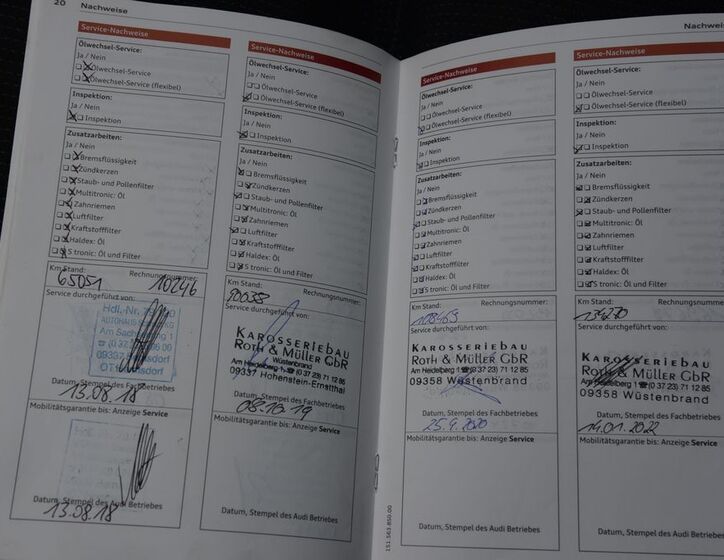 20 Nachweise
Service-Nachweise
Ölwechsel-Service:
Ja / Nein
Ölwechsel-Service
Ölwechsel-Service (flexibel)
Inspektion:
Ja / Nein
Inspektion
Zusatzarbeiten:
Ja / Nein
Bremsflüssigkeit
Zündkerzen
Staub- und Pollenfilter
Multitronic: Öl
Zahnriemen
Luftfilter
Kraftstofffilter
Haldex: Öl
S tronic: Öl und Filter
Km Stand: Rechnungsnummer:
65051 10246
Service durchgeführt von:
Hdl.-Nr.
Am Sachsenring 1
09337
OT
Datum, Stempel des Fachbetriebes
13.08.18
Mobilitätsgarantie bis: Anzeige Service
Datum, Stempel des Audi Betriebes
13.08.18
Service-Nachweise
Ölwechsel-Service:
Ja / Nein
Ölwechsel-Service
Ölwechsel-Service (flexibel)
Inspektion:
Ja / Nein
Inspektion
Zusatzarbeiten:
Ja / Nein
Bremsflüssigkeit
Zündkerzen
Staub- und Pollenfilter
Multitronic: Öl
Zahnriemen
Luftfilter
Kraftstofffilter
Haldex: Öl
S tronic: Öl und Filter
Km Stand: Rechnungsnummer:
90038
Service durchgeführt von:
KAROSSERIEBAU
ROTH & MÜLLER GBR
Wüstenbrand
Am Heidelberg 1 ☎ (0 37 23) 71 12 85
09337 Hohenstein-Ernstthal
Datum, Stempel des Fachbetriebes
08.10.19
Mobilitätsgarantie bis: Anzeige Service
Datum, Stempel des Audi Betriebes
Nachweise
Service-Nachweise
Ölwechsel-Service:
Ja / Nein
Ölwechsel-Service
Ölwechsel-Service (flexibel)
Inspektion:
Ja / Nein
Inspektion
Zusatzarbeiten:
Ja / Nein
Bremsflüssigkeit
Zündkerzen
Staub- und Pollenfilter
Multitronic: Öl
Zahnriemen
Luftfilter
Kraftstofffilter
Haldex: Öl
S tronic: Öl und Filter
Km Stand: Rechnungsnummer:
Service durchgeführt von:
KAROSSERIEBAU
ROTH & MÜLLER GBR
Am Heidelberg 1 ☎ (0 37 23) 71 12 85
09358 Wüstenbrand
Datum, Stempel des Fachbetriebes
25.9.2020
Mobilitätsgarantie bis: Anzeige Service
Datum, Stempel des Audi Betriebes
151.563.850.00
Service-Nachweise
Ölwechsel-Service:
Ja / Nein
Ölwechsel-Service
Ölwechsel-Service (flexibel)
Inspektion:
Ja / Nein
Inspektion
Zusatzarbeiten:
Ja / Nein
Bremsflüssigkeit
Zündkerzen
Staub- und Pollenfilter
Multitronic: Öl
Zahnriemen
Luftfilter
Kraftstofffilter
Haldex: Öl
S tronic: Öl und Filter
Km Stand: Rechnungsnummer:
Service durchgeführt von:
KAROSSERIEBAU
ROTH & MÜLLER GBR
Am Heidelberg 1 ☎ (0 37 23) 71 12 85
09358 Wüstenbrand
Datum, Stempel des Fachbetriebes
14.01.2022
Mobilitätsgarantie bis: Anzeige Service
Datum, Stempel des Audi